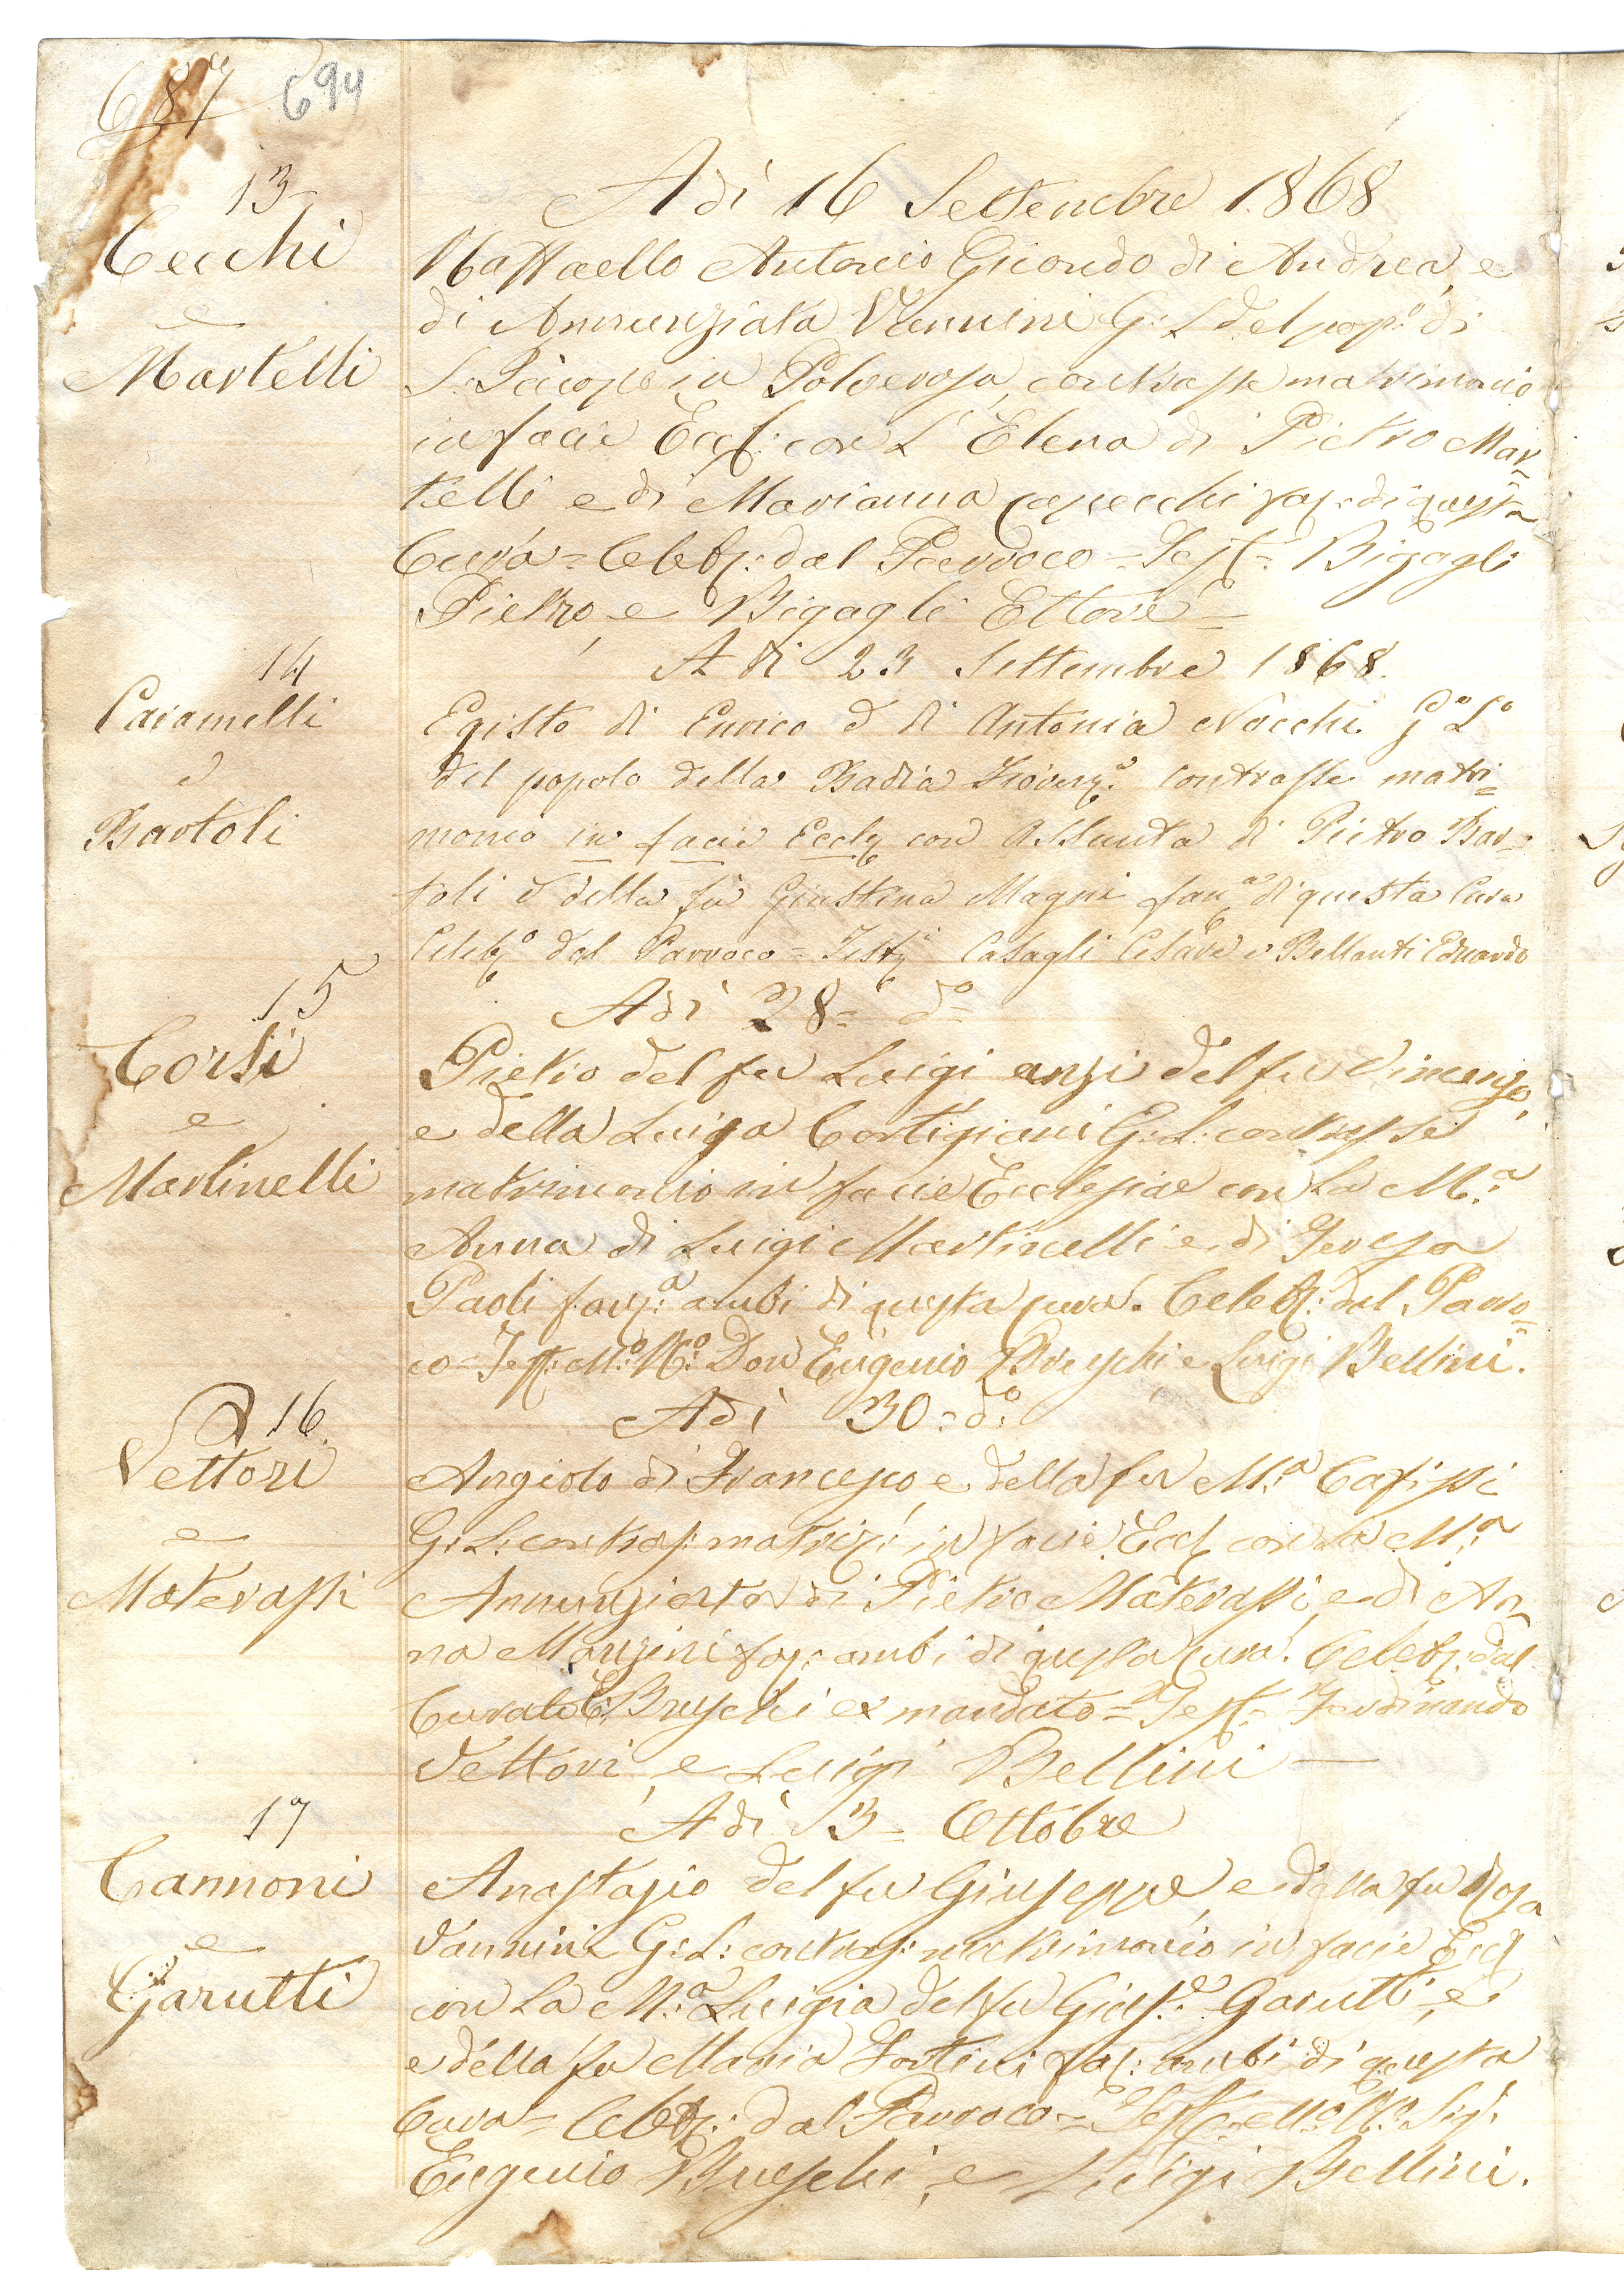 687 694
13
Cecchi
e
Martelli
Adì 16 Settembre 1868
Raffaello Antonio Giocondo di Andrea, e
di Annunziata Vannini G: L del pop:º di
S. Jacopo in Polverosa, contrasse matrimonio
in facie Eccl: con L' Elena di Pietro Mar=
telli e di Marianna Capecchi fa: di questa
Cura = Celeb: dal Parroco = Test = Bigagli
Pietro, e Bigagli Ettore =
14
Caramelli
e
Bartoli
A di 23 Settembre 1868.
Egisto di Enrico e di Antonia Nocchi Gº Lº
del popolo della Badia Fiorenª contrasse matri=
monio in facie Eccl con Assunta di Pietro Bar=
toli e della fù Giustina Magni fanª di questa Cura
Celebº dal Parroco = Testi Casagli Cesare e Bellanti Eduardo
15
Corsi
e
Martinelli
Adì 28= dº
Pietro del fu Luigi anzi del fu Vincenzo,
e della Luigia Cortigiani G: L: contrasse
matrimonio in facie Ecclesiae con La M:ª
Anna di Luigi Martinelli e di Teresa
Paoli fan:ª ambi di questa cura. Celeb: dal Parro=
co = Test: M:º R:º Don Eugenio Brueschi e Luigi Bellini.
16.
Vettori
e
Materassi
Adì 30= dº
Angiolo di Francesco, e della fu M:ª Cafissi
G: L: contras: matrim: in facie Eccl con La M:ª
Annunziata di Pietro Materassi, e di An=
na Manzini fa: ambi di questa Cura. Celeb: dal
Curato E: Brueschi ex mandato = Test = Ferdinando
Vettori, e Luigi Bellini —
17
Cannoni
e
Garutti
Adì 3= Ottobre
Anastasio del fu Giuseppe, e della fu Rosa
Vannini G: L: contras: matrimonio in facie Eccl
con La M:ª Luigia del fu Gius:e Garutti, e
e della fu Maria Fortini fa: ambi di questa
Cura = Celeb: dal Parroco = Test = M:º R:º Sig:
Eugenio Brueschi, e Luigi Bellini.